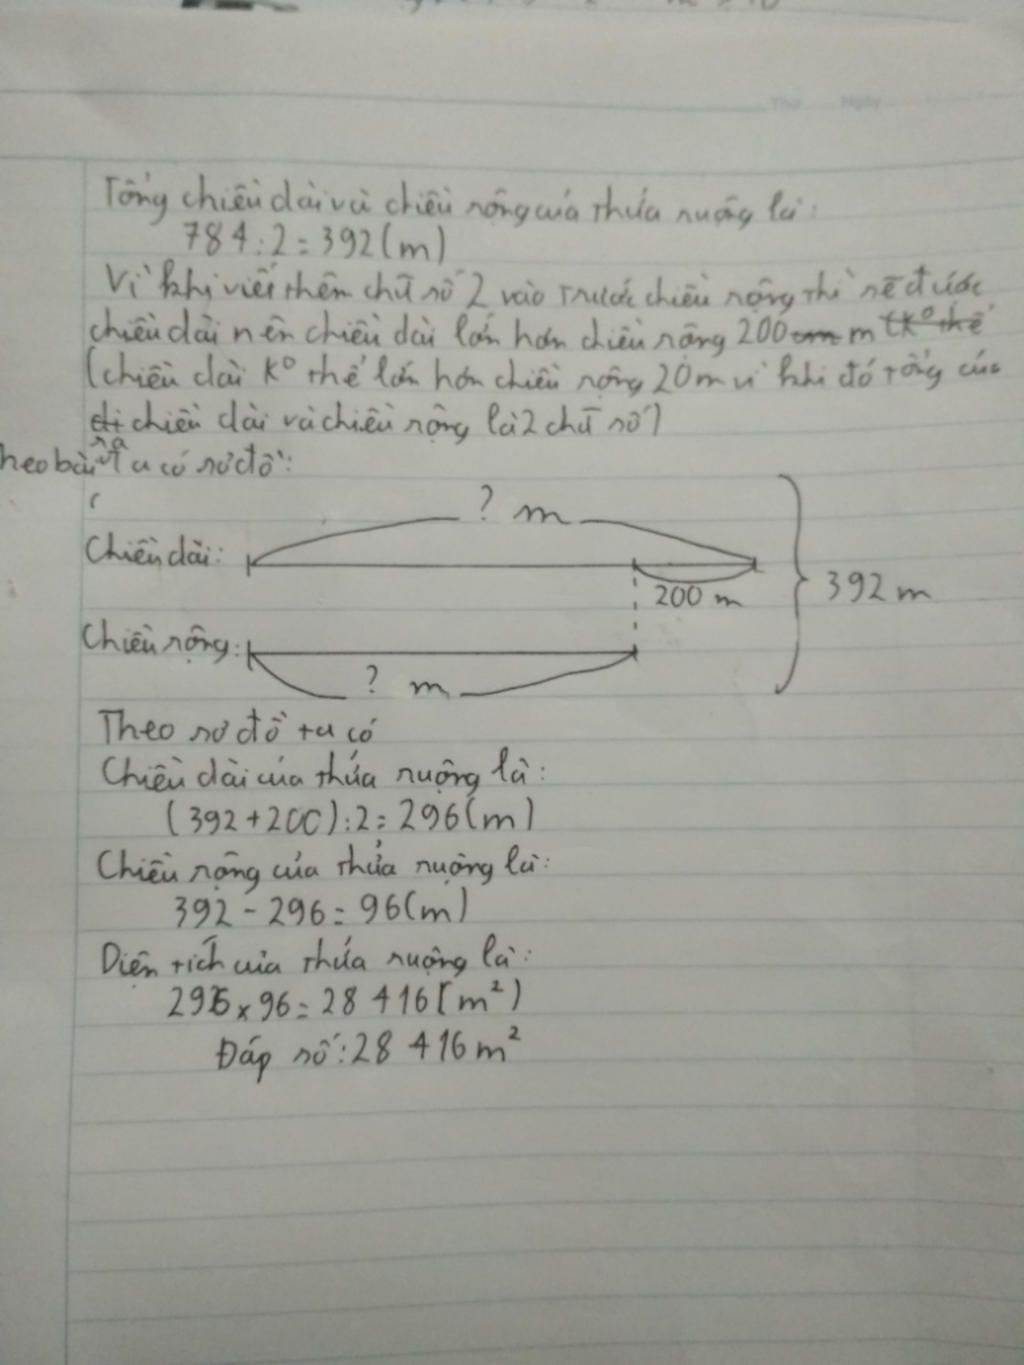 Thứ Ngày
Tổng chiều dài và chiều rộng của thửa ruộng là:
784 : 2 = 392 (m)
Vì khi viết thêm chữ số 2 vào trước chiều rộng thì sẽ được
chiều dài nên chiều dài lớn hơn chiều rộng 200 m
(chiều dài k° thể lớn hơn chiều rộng 20m vì khi đó tổng của
chiều dài và chiều rộng là 2 chữ số)
heo bài ra ta có sơ đồ:
? m
Chiều dài:
200 m
392 m
Chiều rộng:
? m
Theo sơ đồ ta có
Chiều dài của thửa ruộng là:
(392 + 200) : 2 = 296 (m)
Chiều rộng của thửa ruộng là:
392 - 296 = 96 (m)
Diện tích của thửa ruộng là:
296 x 96 = 28 416 (m²)
Đáp số: 28 416 m²